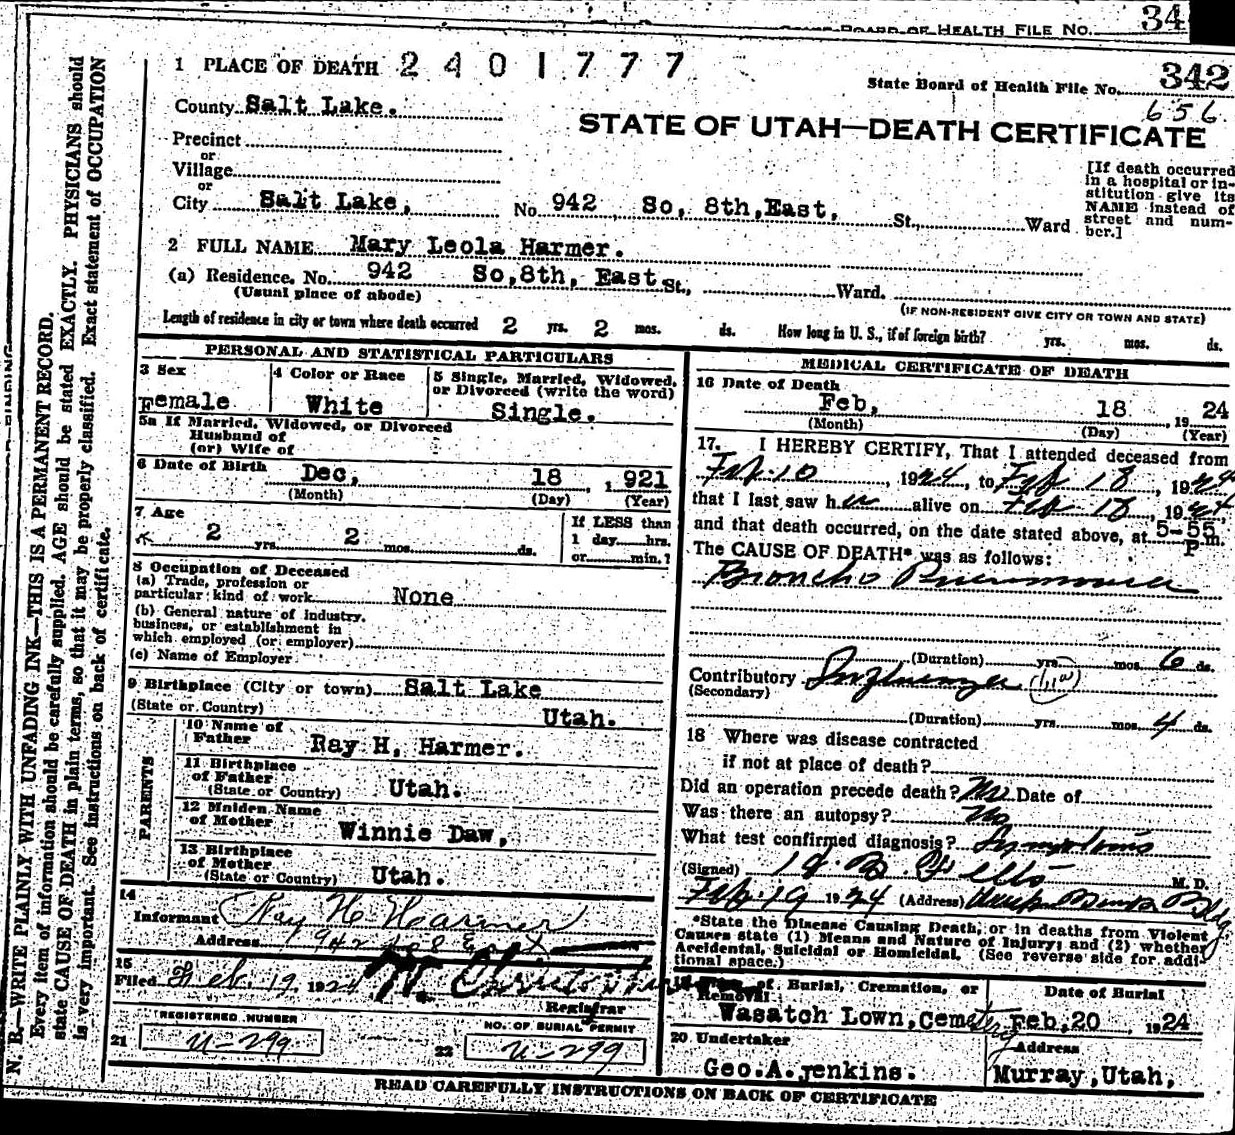 34
State Board of Health File No.
1 PLACE OF DEATH 2401777
State Board of Health File No. 342
656
County Salt Lake.
STATE OF UTAH—DEATH CERTIFICATE
Precinct
or
Village
or
City Salt Lake, No 942 So, 8th, East, St., Ward
[If death occurred in a hospital or in-
stitution give its
NAME instead of
street and num-
ber.]
2 FULL NAME Mary Leola Harmer.
(a) Residence. No. 942 So,8th, East St., Ward.
(Usual place of abode) (IF NON-RESIDENT GIVE CITY OR TOWN AND STATE)
Length of residence in city or town where death occurred 2 yrs. 2 mos. ds. How long in U. S., if of foreign birth? yrs. mos. ds.
PERSONAL AND STATISTICAL PARTICULARS
3 Sex
Female
4 Color or Race
White
5 Single, Married, Widowed,
or Divorced (write the word)
Single.
5a If Married, Widowed, or Divorced
Husband of
(or) Wife of
6 Date of Birth Dec, 18 , 1 921
(Month) (Day) (Year)
7 Age
2 yrs. 2 mos. ds.
If LESS than
1 day hrs.
or min.?
8 Occupation of Deceased
(a) Trade, profession or
particular kind of work None
(b) General nature of industry,
business, or establishment in
which employed (or employer)
(c) Name of Employer
9 Birthplace (City or town) Salt Lake
(State or Country) Utah.
PARENTS
10 Name of
Father Ray H. Harmer.
11 Birthplace
of Father
(State or Country) Utah.
12 Maiden Name
of Mother Winnie Daw,
13 Birthplace
of Mother
(State or Country) Utah.
14
Informant Ray H. Harmer
Address 942 So 8 East
15
Filed Feb. 19, 1924
Registrar
REGISTERED NUMBER
21 U-299
NO. OF BURIAL PERMIT
22 U-299
MEDICAL CERTIFICATE OF DEATH
16 Date of Death
Feb, 18 , 19 24
(Month) (Day) (Year)
17. I HEREBY CERTIFY, That I attended deceased from
Feb. 10 , 1924, to Feb 18 , 1924
that I last saw her alive on Feb 18, 1924
and that death occurred, on the date stated above, at 5-55 P.m.
The CAUSE OF DEATH* was as follows:
Broncho Pneumonia
(Duration) yrs. mos. 6 ds.
Contributory Influenza (11a)
(Secondary)
(Duration) yrs. mos. 4 ds.
18 Where was disease contracted
if not at place of death?
Did an operation precede death? No Date of
Was there an autopsy? No
What test confirmed diagnosis? Symptoms
(Signed) M. D.
Feb. 19 1924 (Address) Bldg
*State the Disease Causing Death, or in deaths from Violent
Causes state (1) Means and Nature of Injury; and (2) whether
Accidental, Suicidal or Homicidal. (See reverse side for addi-
tional space.)
of Burial, Cremation, or
Removal
Wasatch Lown, Cemetery
Date of Burial
Feb, 20 , 1924
20 Undertaker
Geo.A.jenkins.
Address
Murray,Utah,
READ CAREFULLY INSTRUCTIONS ON BACK OF CERTIFICATE
N. B.—WRITE PLAINLY WITH UNFADING INK—THIS IS A PERMANENT RECORD.
Every item of information should be carefully supplied. AGE should be stated EXACTLY. PHYSICIANS should
state CAUSE OF DEATH in plain terms, so that it may be properly classified. Exact statement of OCCUPATION
is very important. See instructions on back of certificate.